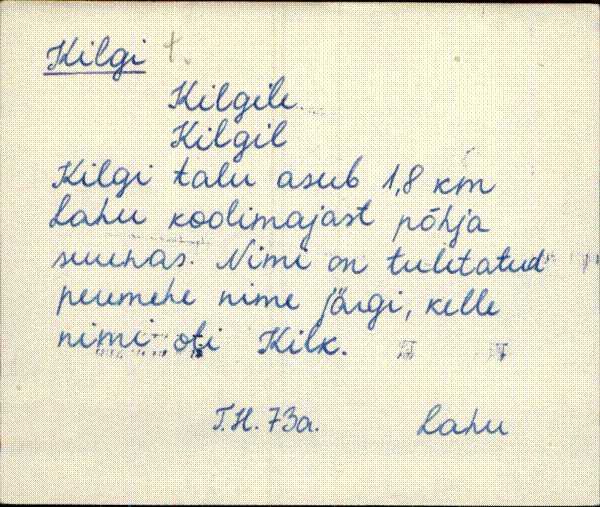 Kilgi t.
Kilgile
Kilgil
Kilgi talu asub 1,8 km
Lahu koolimajast põhja
suunas. Nimi on tuletatud
peremehe nime järgi, kelle
nimi oli Kilk.
T.H. 73a. Lahu